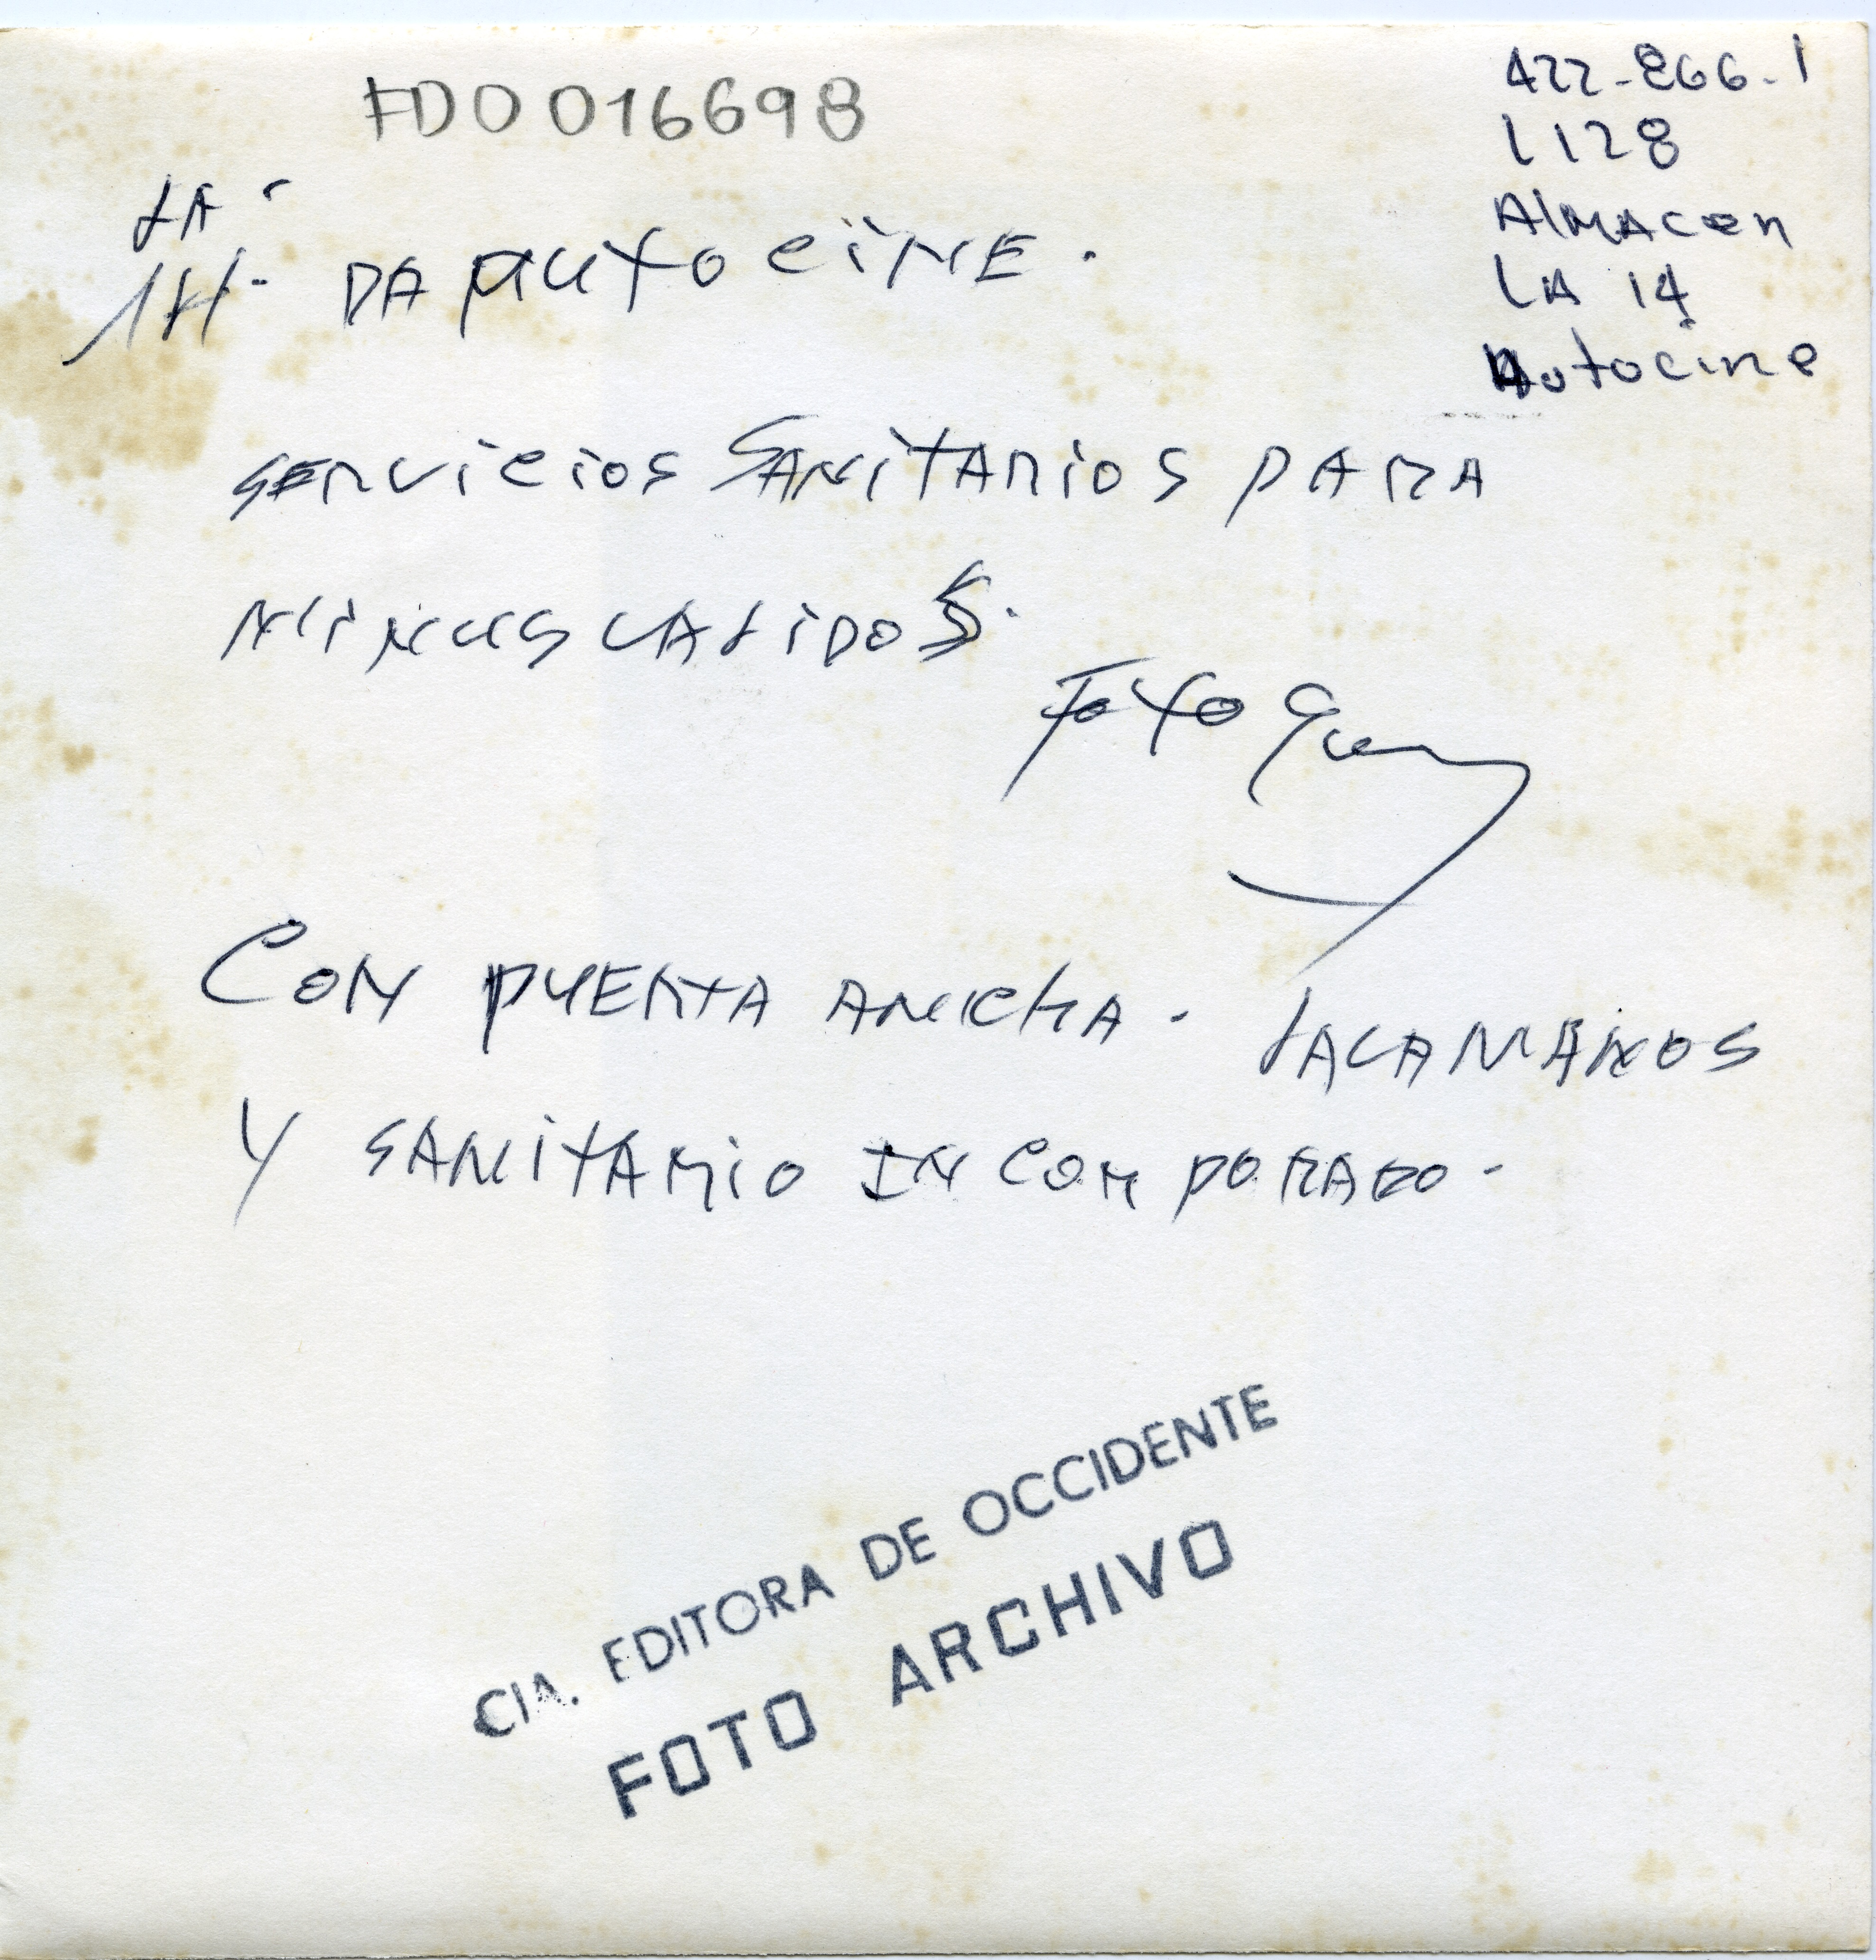 FD0016698
422-866-1
L128
Almacen
LA 14
Autocine
LA
14. DA AUTOCINE.
SERVICIOS SANITARIOS PARA
MINUSVALIDOS.
FOTO
CON PUERTA ANCHA. LAVAMANOS
Y SANITARIO INCORPORADO.
CIA. EDITORA DE OCCIDENTE
FOTO ARCHIVO